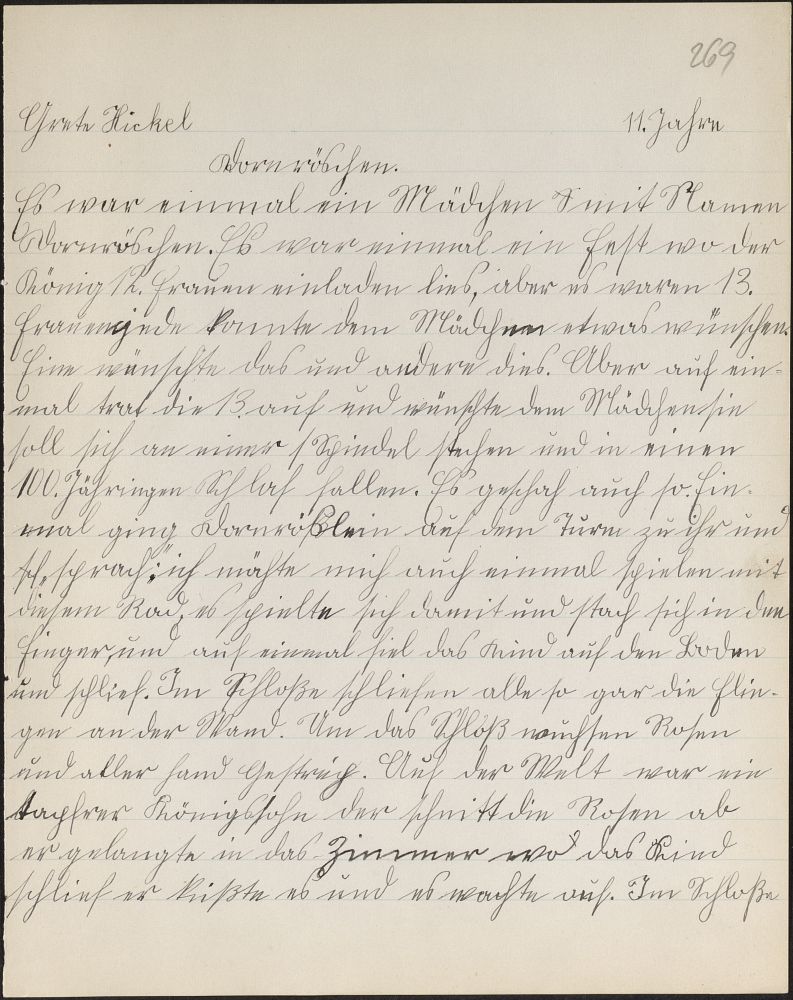 269
Grete Hickel 11. Jahre
Dornröschen.
Es war einmal ein Mädchen mit Namen
Dornröschen. Es war einmal ein Fest wo der
König 12. Frauen einladen lies, aber es waren 13.
Frauen jede konnte dem Mädchen etwas wünschen.
Eine wünschte das und andere dies. Aber auf ein-
mal trat die 13. auf und wünschte dem Mädchen sie
soll sich an einer Spindel stechen und in einen
100. Jähringen Schlaf fallen. Es geschah auch so. Ein-
mal ging Dornrößlein auf dem Turm zu ihr und
sprach: ich mähte mich auch einmal spielen mit
diesem Rad, es spielte sich damit und stach sich in den
Finger, und auf einmal fiel das Kind auf den Boden
und schlief. Im Schloße schliefen alle so gar die Flie-
gen an der Wand. Um das Schloß wuchsen Rosen
und aller hand Gestrüp. Auf der Welt war ein
tapfrer Königssohn der schnitt die Rosen ab
er gelangte in das Zimmer wo das Kind
schlief er küßte es und es wachte auf. Im Schloße